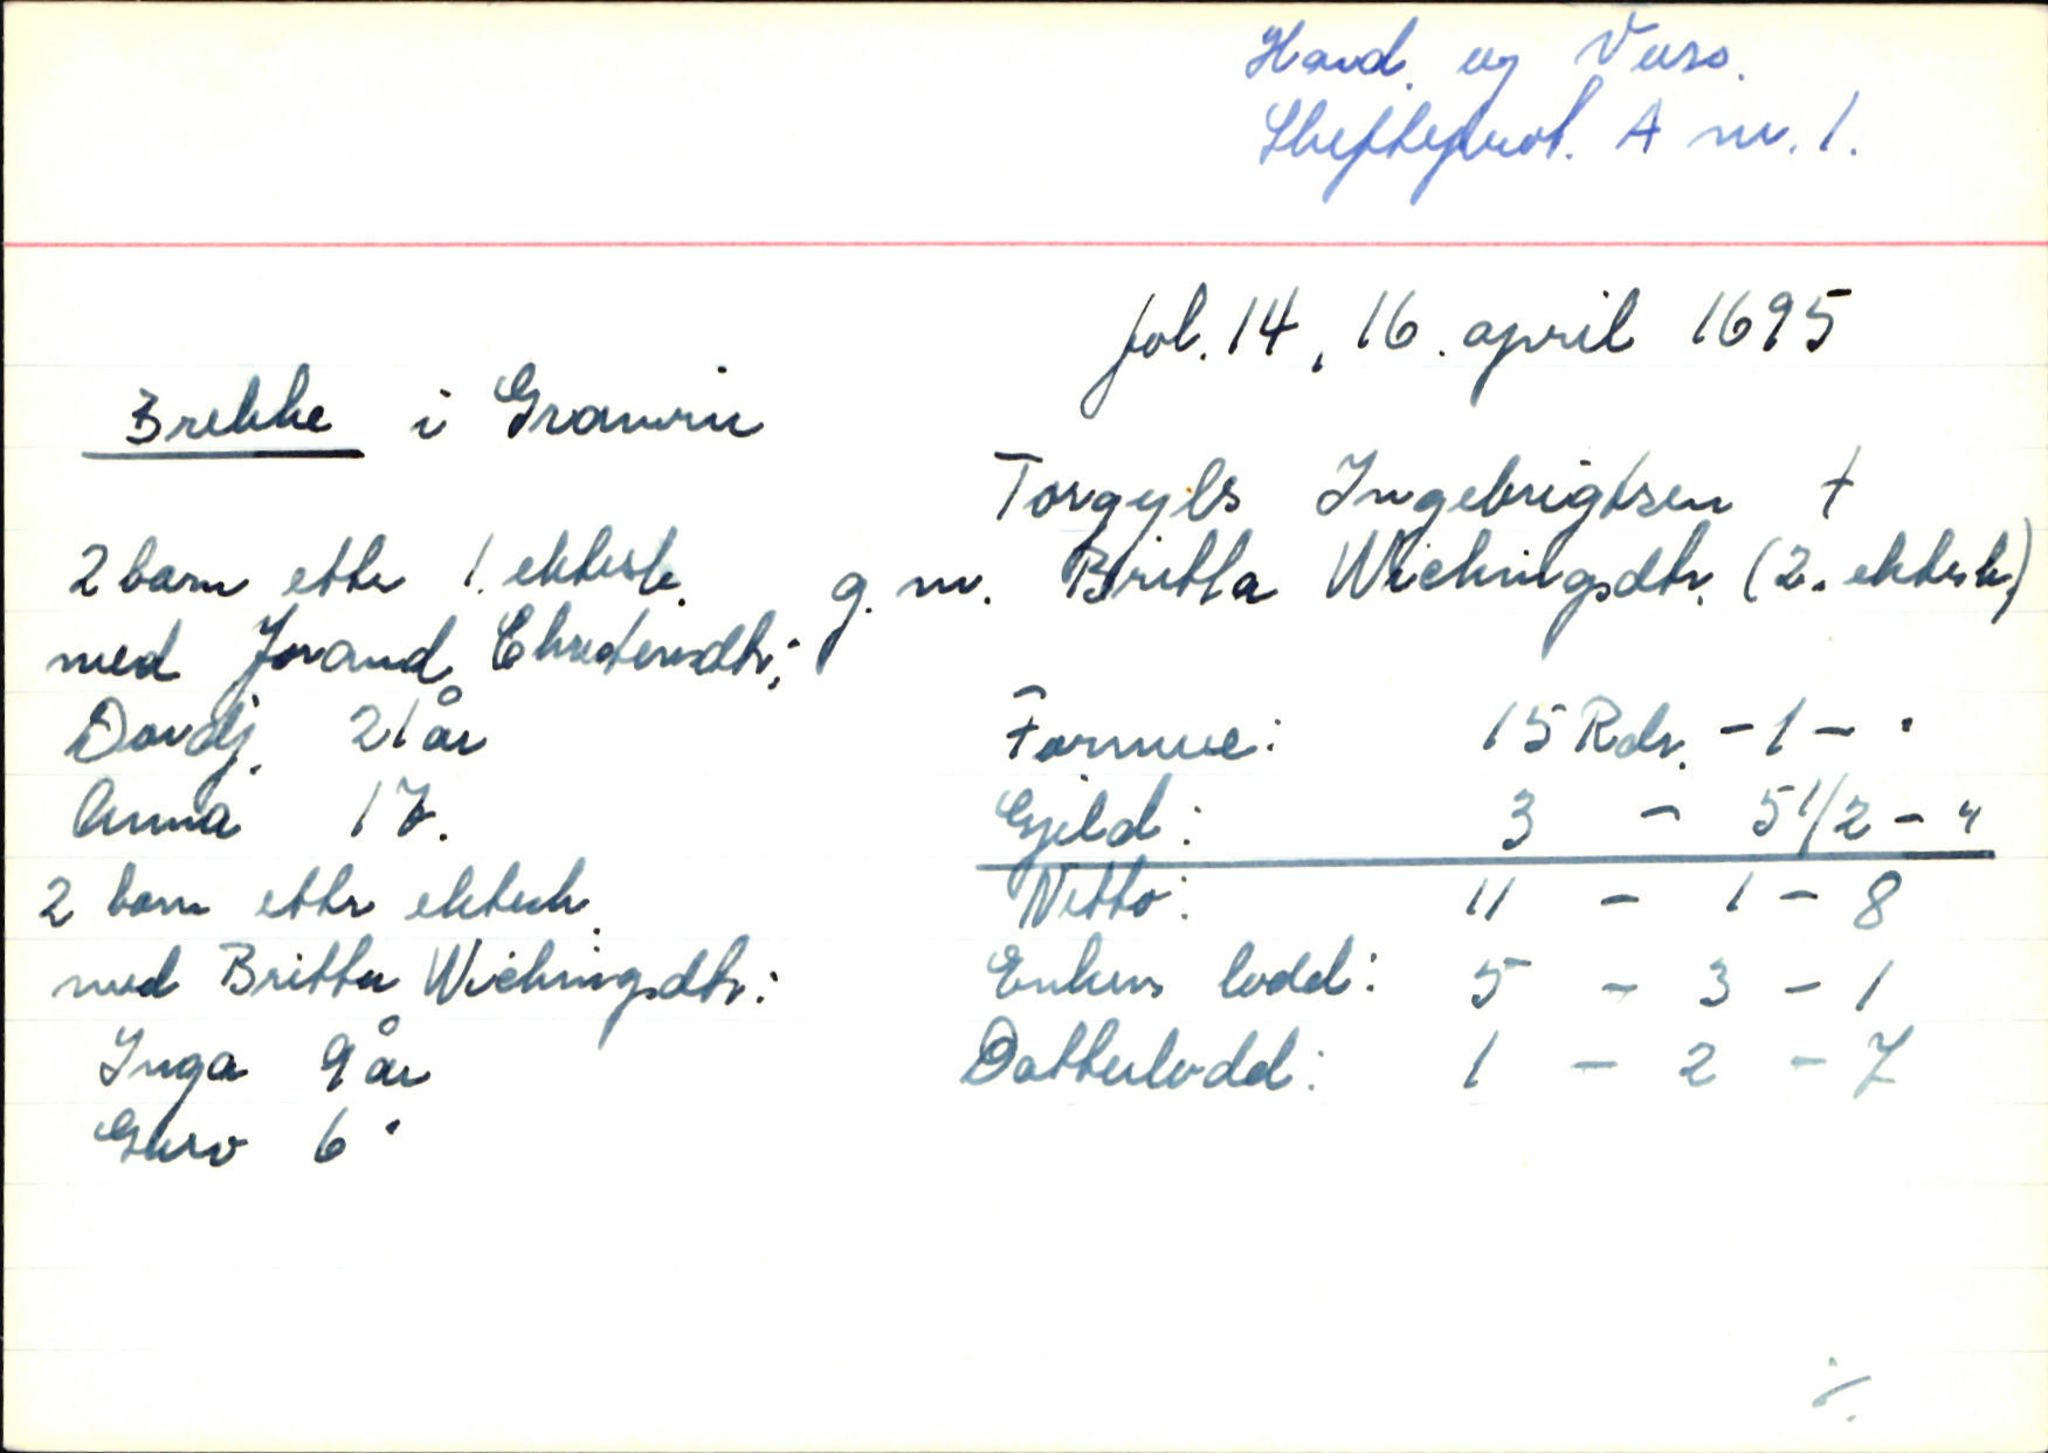 Hard. og Voss.
Skifteprot. A nr. 1.
fol. 14, 16. april 1695
Brekke i Granvin
Torgyls Ingebrigtsen †
g. m. Britta Wichingsdtr. (2. ektesk.)
2 barn etter 1. ektesk.
med Jorand
Dordj. 21 år
Anna 17.
2 barn etter ektesk.
med Britta Wichingsdtr.:
Inga 9 år
Guro 6 "
Formue: 15 Rdr. - 1 - "
Gjeld: 3 - 5 1/2 - "
Netto: 11 - 1 - 8
Enkens lodd: 5 - 3 - 1
Datterlodd: 1 - 2 - 7